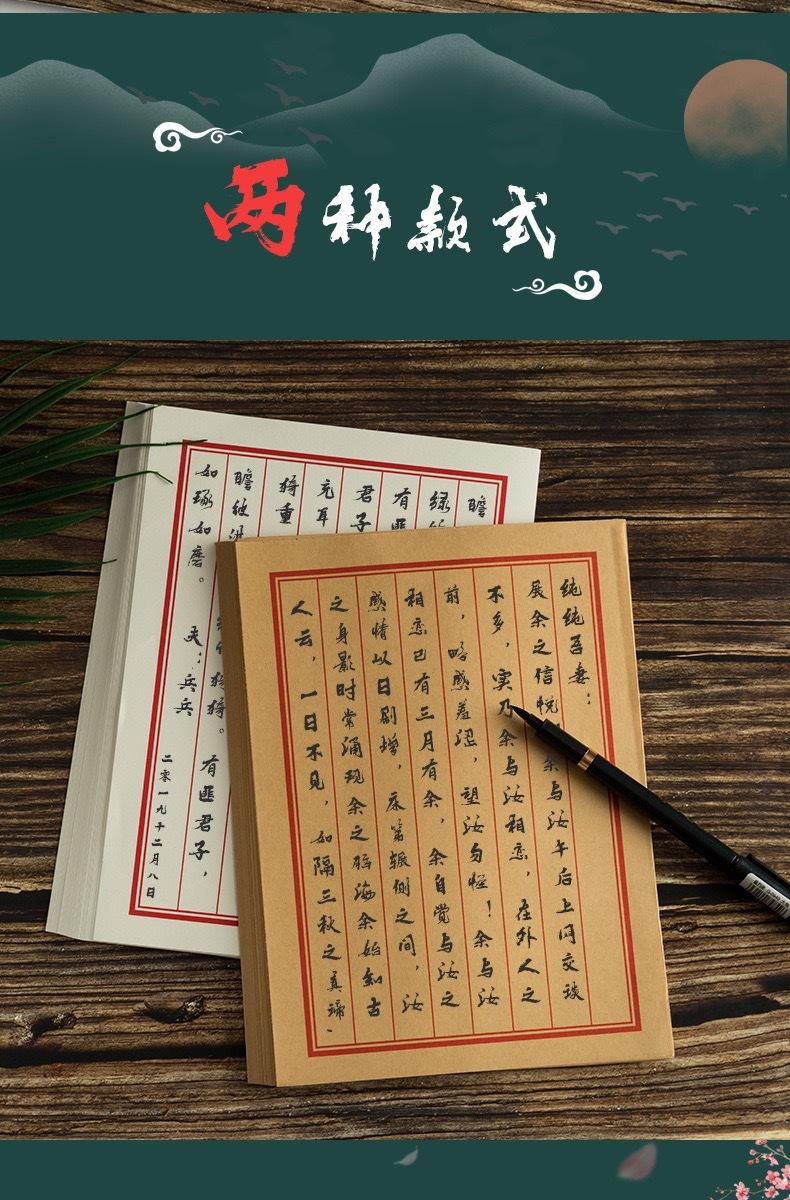 两种款式
纯纯吾妻：
展余之信悦 余与汝午后上网交谈
不多，实乃余与汝相恋，在外人之
前，略感羞涩，望汝勿怪！余与汝
相恋已有三月有余，余自觉与汝之
感情以日剧增，床笫辗侧之间，汝
之身影时常涌现余之脑海余始知古
人云，一日不见，如隔三秋之真谛、
瞻
绿
有匪
君子
充耳
猗重
瞻彼淇 猗猗。有匪君子，
如琢如磨。 夫：兵兵
二零一九十二月八日